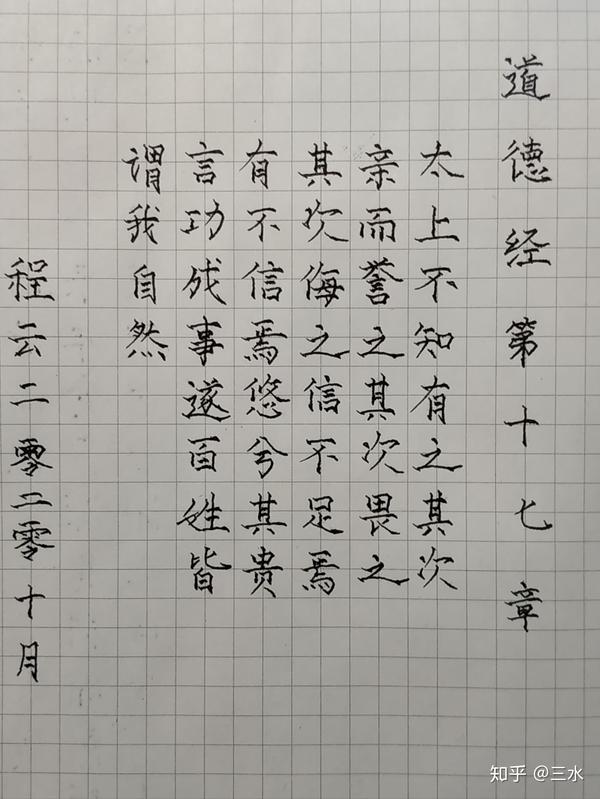 道德经第十七章
太上不知有之其次
亲而誉之其次畏之
其次侮之信不足焉
有不信焉悠兮其贵
言功成事遂百姓皆
谓我自然
程云二零二零十月
知乎 @三水